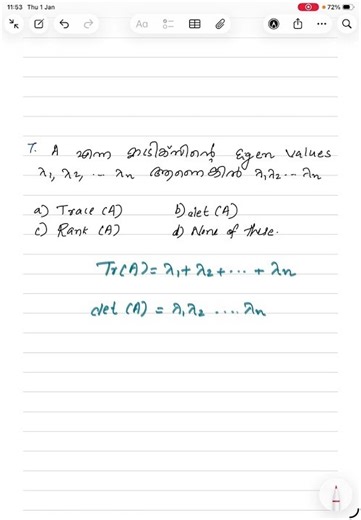 11:53 Thu 1 Jan
72%
Aa
7. A എന്ന മാട്രിക്സിന്റെ Eigen values
λ₁, λ₂, ... λn ആണെങ്കിൽ λ₁λ₂...λn
a) Trace (A) b) det (A)
c) Rank (A) d) None of these.
Tr(A) = λ₁ + λ₂ + ... + λn
det (A) = λ₁λ₂ .... λn